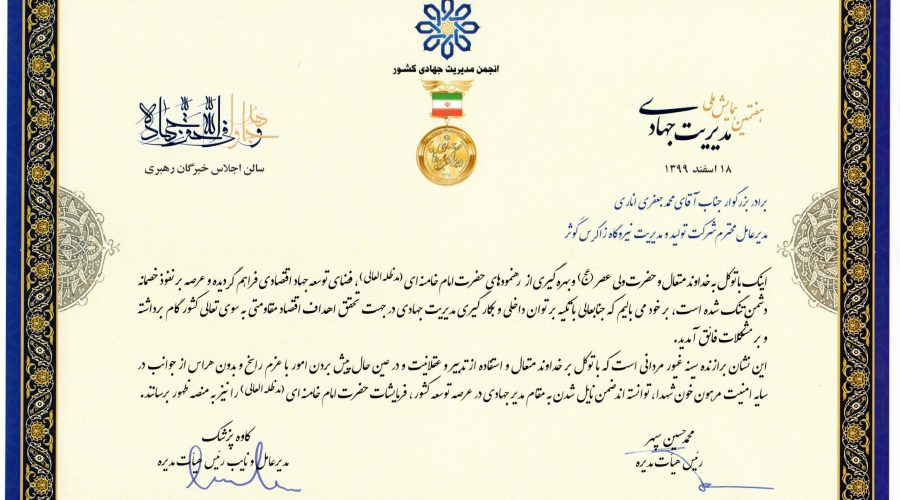 انجمن مدیریت جهادی کشور
هفتمین همایش ملی
مدیریت جهادی
۱۸ اسفند ۱۳۹۹
وجاهدوا فی الله حق جهاده
سالن اجلاس خبرگان رهبری
برادر بزرگوار جناب آقای محمد جعفری اناری
مدیرعامل محترم شرکت تولید و مدیریت نیروگاه زاگرس کوثر
اینک با توکل به خداوند متعال و حضرت ولی عصر (عج) و بهره گیری از رهنمودهای حضرت امام خامنه ای (مدظله العالی)، فضای توسعه جهاد اقتصادی فراهم گردیده و عرصه بر نفوذ خصمانه
دشمن تنگ شده است، بر خود می بالیم که جنابعالی با تکیه بر توان داخلی و بکارگیری مدیریت جهادی در جهت تحقق اهداف اقتصاد مقاومتی به سوی تعالی کشور گام برداشته
و بر مشکلات فائق آمدید.
این نشان برازنده سینه غیور مردانی است که با توکل بر خداوند متعال و استفاده از تدبیر و عقلانیت و در عین حال پیش بردن امور با عزم راسخ و بدون هراس از جوانب در
سایه امنیت مرهون خون شهدا، توانسته اند ضمن نایل شدن به مقام مدیر جهادی در عرصه توسعه کشور، فرمایشات حضرت امام خامنه ای (مدظله العالی) را نیز به منصه ظهور برسانند.
محمدحسین سپهر
رئیس هیأت مدیره
کاوه پزشک
مدیرعامل و نایب رئیس هیأت مدیره